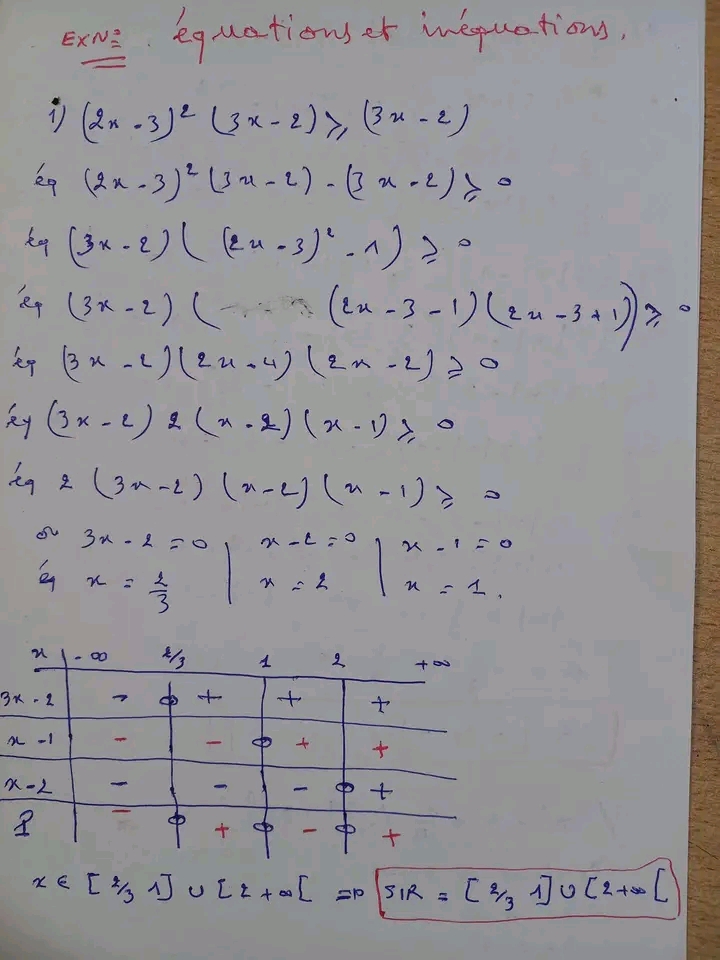 EXN° . équations et inéquations.
1) (2x-3)² (3x-2) ⩾ (3x-2)
éq (2x-3)² (3x-2) - (3x-2) ⩾ 0
éq (3x-2) ( (2x-3)² - 1) ⩾ 0
éq (3x-2) ( (2x-3-1) (2x-3+1)) ⩾ 0
éq (3x-2) (2x-4) (2x-2) ⩾ 0
éq (3x-2) 2 (x-2) (x-1) ⩾ 0
éq 2 (3x-2) (x-2) (x-1) ⩾ 0
or 3x-2=0 | x-2=0 | x-1=0
éq x = 2/3 | x = 2 | x = 1.
x | -∞ 2/3 1 2 +∞
3x-2 | - 0 + | + | +
x-1 | - | - 0 + | +
x-2 | - | - | - 0 +
P | - 0 + 0 - 0 +
x ∈ [2/3 1] ∪ [2 +∞[ => SIR = [2/3 1] ∪ [2+∞[